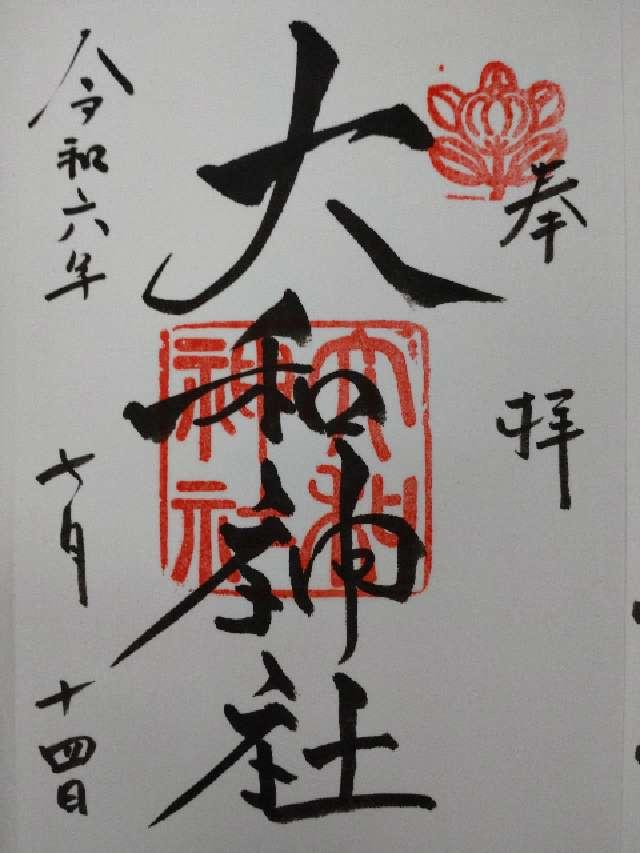 奉拝
大和神社
大和
神社
令和六年七月十四日